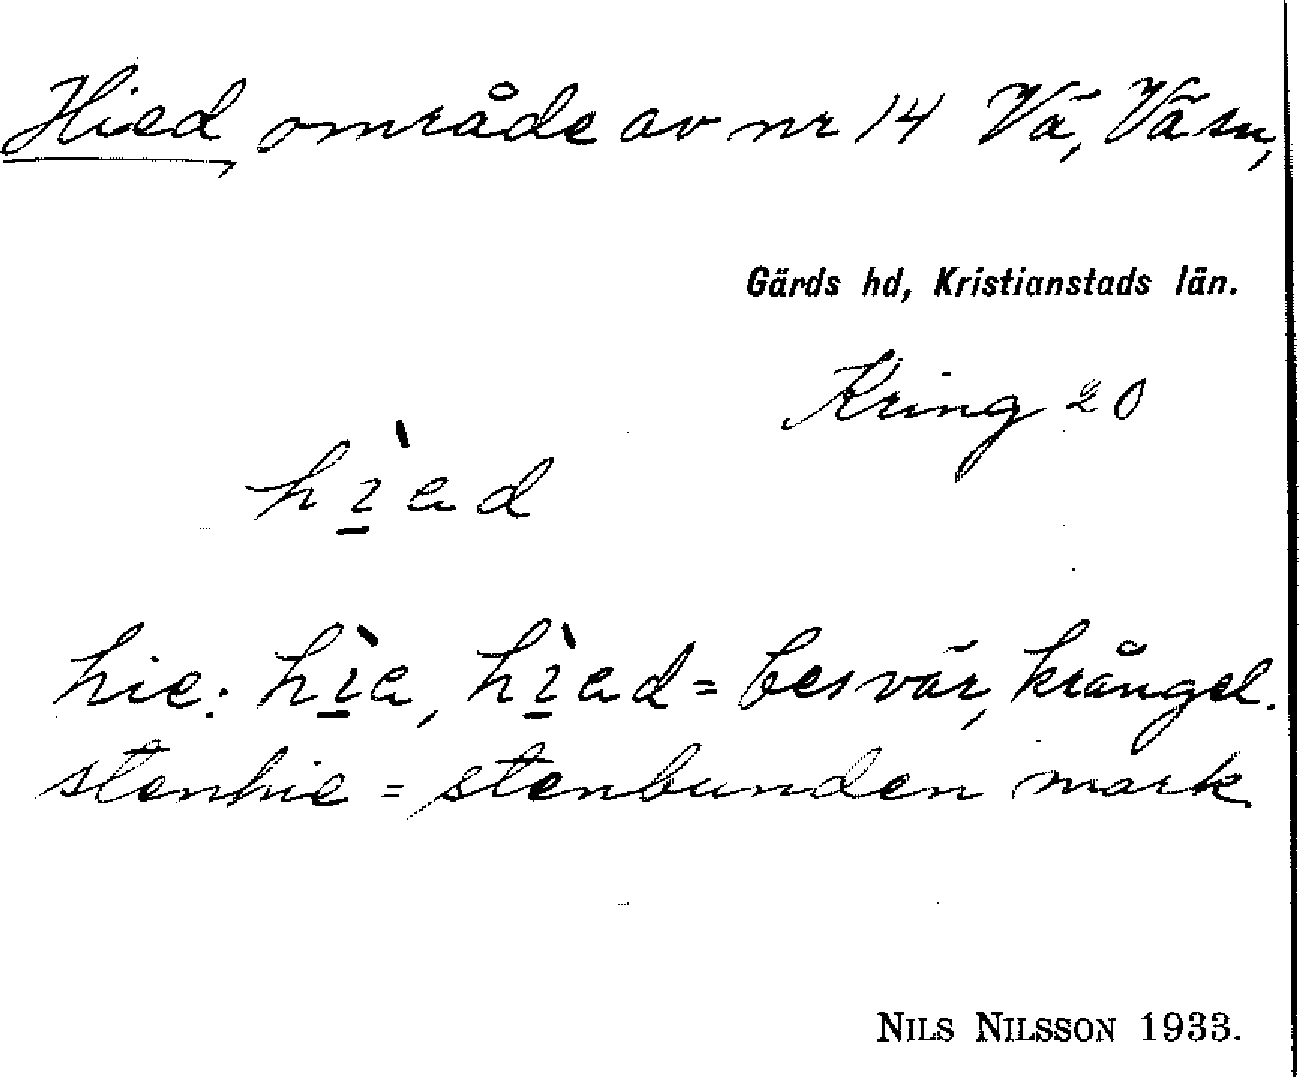 Hied, område av nr 14 Vä, Vä sn,
Gärds hd, Kristianstads län.
Kring 20
hì̱ad
hie: hì̱a, hì̱ad = besvär, krångel.
stenhie = stenbunden mark
NILS NILSSON 1933.